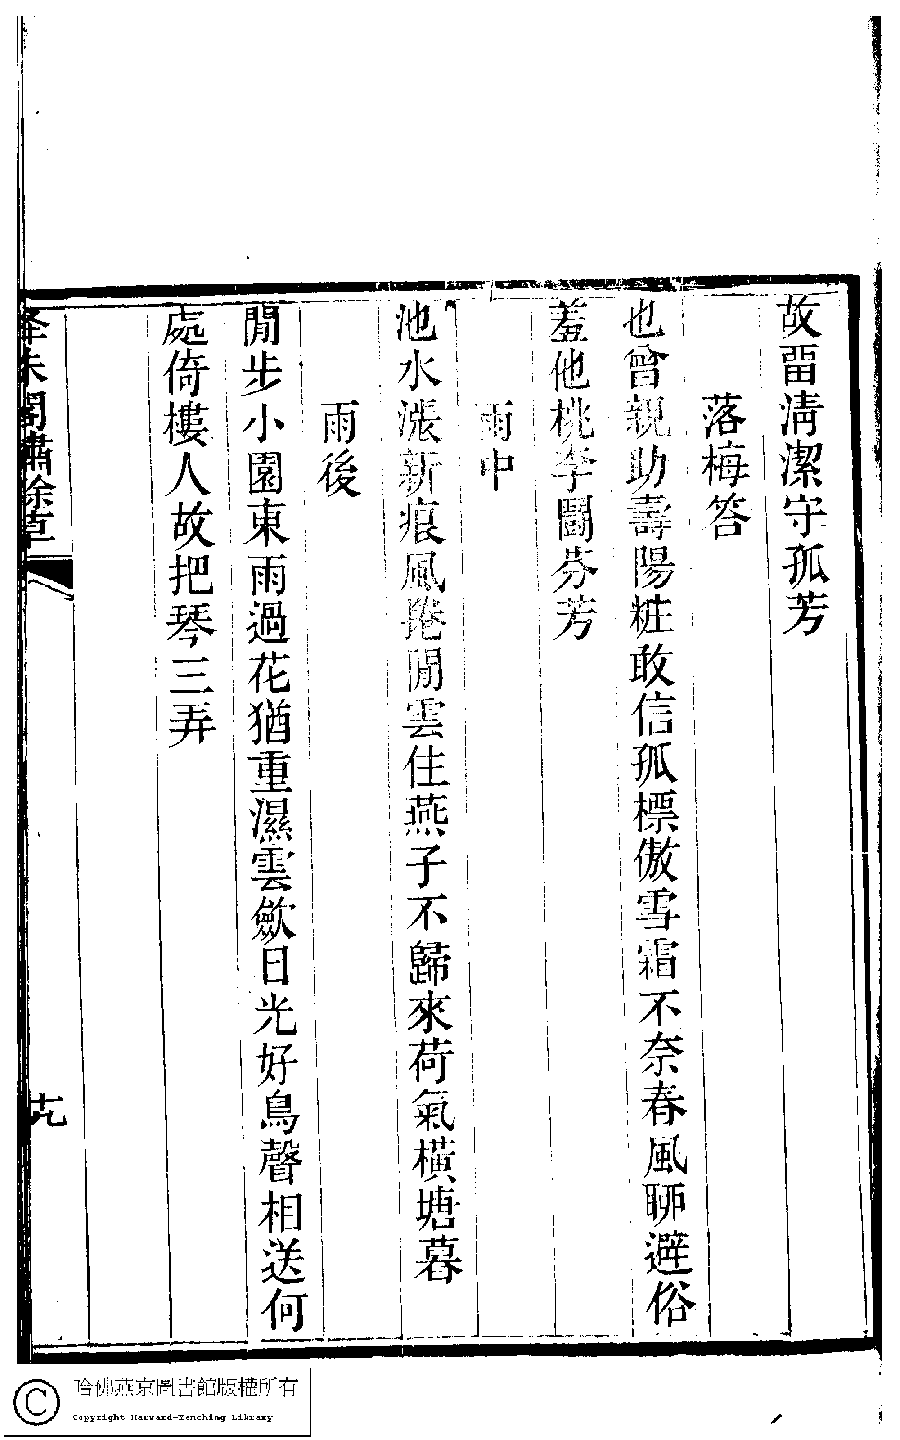 故畱淸潔守孤芳
落梅答
也曾親助壽陽粧敢信孤標傲雪霜不奈春風聊避俗
羞他桃李鬬芬芳
雨中
池水漲新痕風捲閒雲住燕子不歸來荷氣橫塘暮
雨後
閒步小園東雨過花猶重濕雲歛日光好鳥聲相送何
處倚樓人故把琴三弄
朱閣繡餘草
十九
哈佛燕京圖書館版權所有
Copyright Harvard-Yenching Library